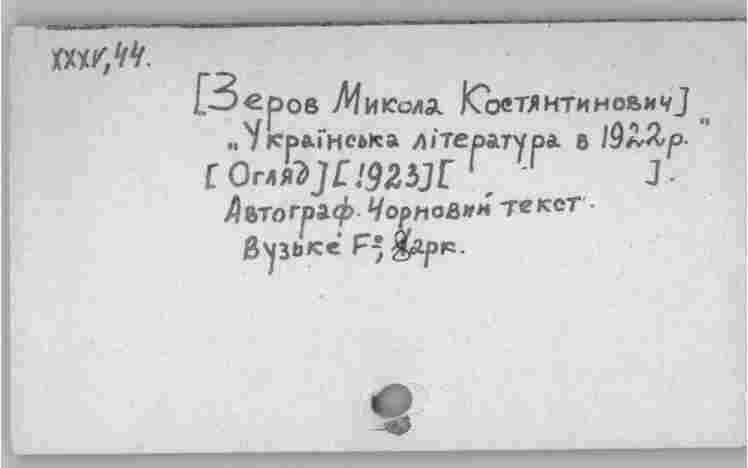 XXXV,44.
[Зеров Микола Костянтинович]
„Українська література в 1922р."
[Огляд] [!923] [ ].
Автограф. Чорновий текст.
Вузьке F°, 8 арк.